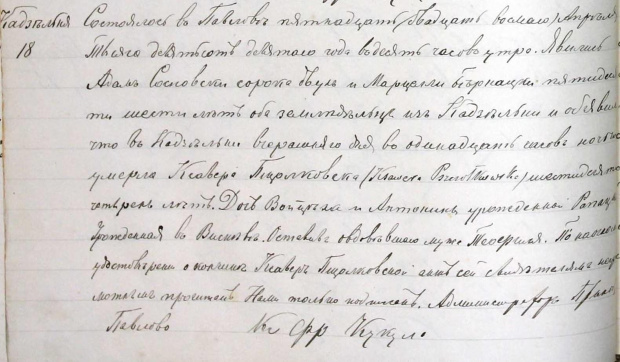 Кадзѣльня Состоялось въ Павловѣ пятнадцатаго /двадцать восьмаго/ Апрѣля
18 Тысяча девятьсотъ девятаго года въ десять часовъ утра. Явились
Адамъ Сосновски сорока двухъ и Марцелли Бѣрнацки пятидеся
ти шести лѣтъ оба земледѣльцы изъ Кадзѣльни и объявили
что въ Кадзѣльни вчерашняго дня въ одинадцать часовъ ночи
умерла Ксавера Пщолковска шестидеся
четырехъ лѣтъ. Дочь Войцѣха и Антонины урожденной
рожденная въ Оставивъ овдовѣвшаго мужа Теофиля. По
удостовѣреніи о кончинѣ Ксаверы Пщолковской актъ сей свидѣтелямъ негра
мотнымъ прочитанъ Нами только подписанъ. Администраторъ
Павлово Кс Фр Кукул